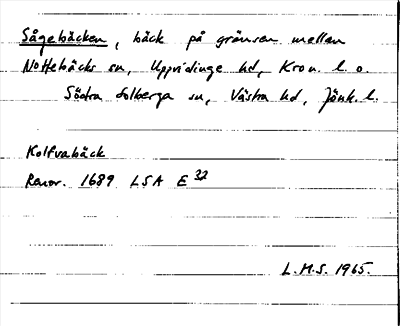 Sågebäcken, bäck på gränsen mellan
Nottebäcks sn, Uppvidinge hd, Kron. l. o.
Södra Solberga sn, Västra hd, Jönk. l.
Kolfvabäck
Renov. 1689 LSA E 32
L.M.S. 1965.